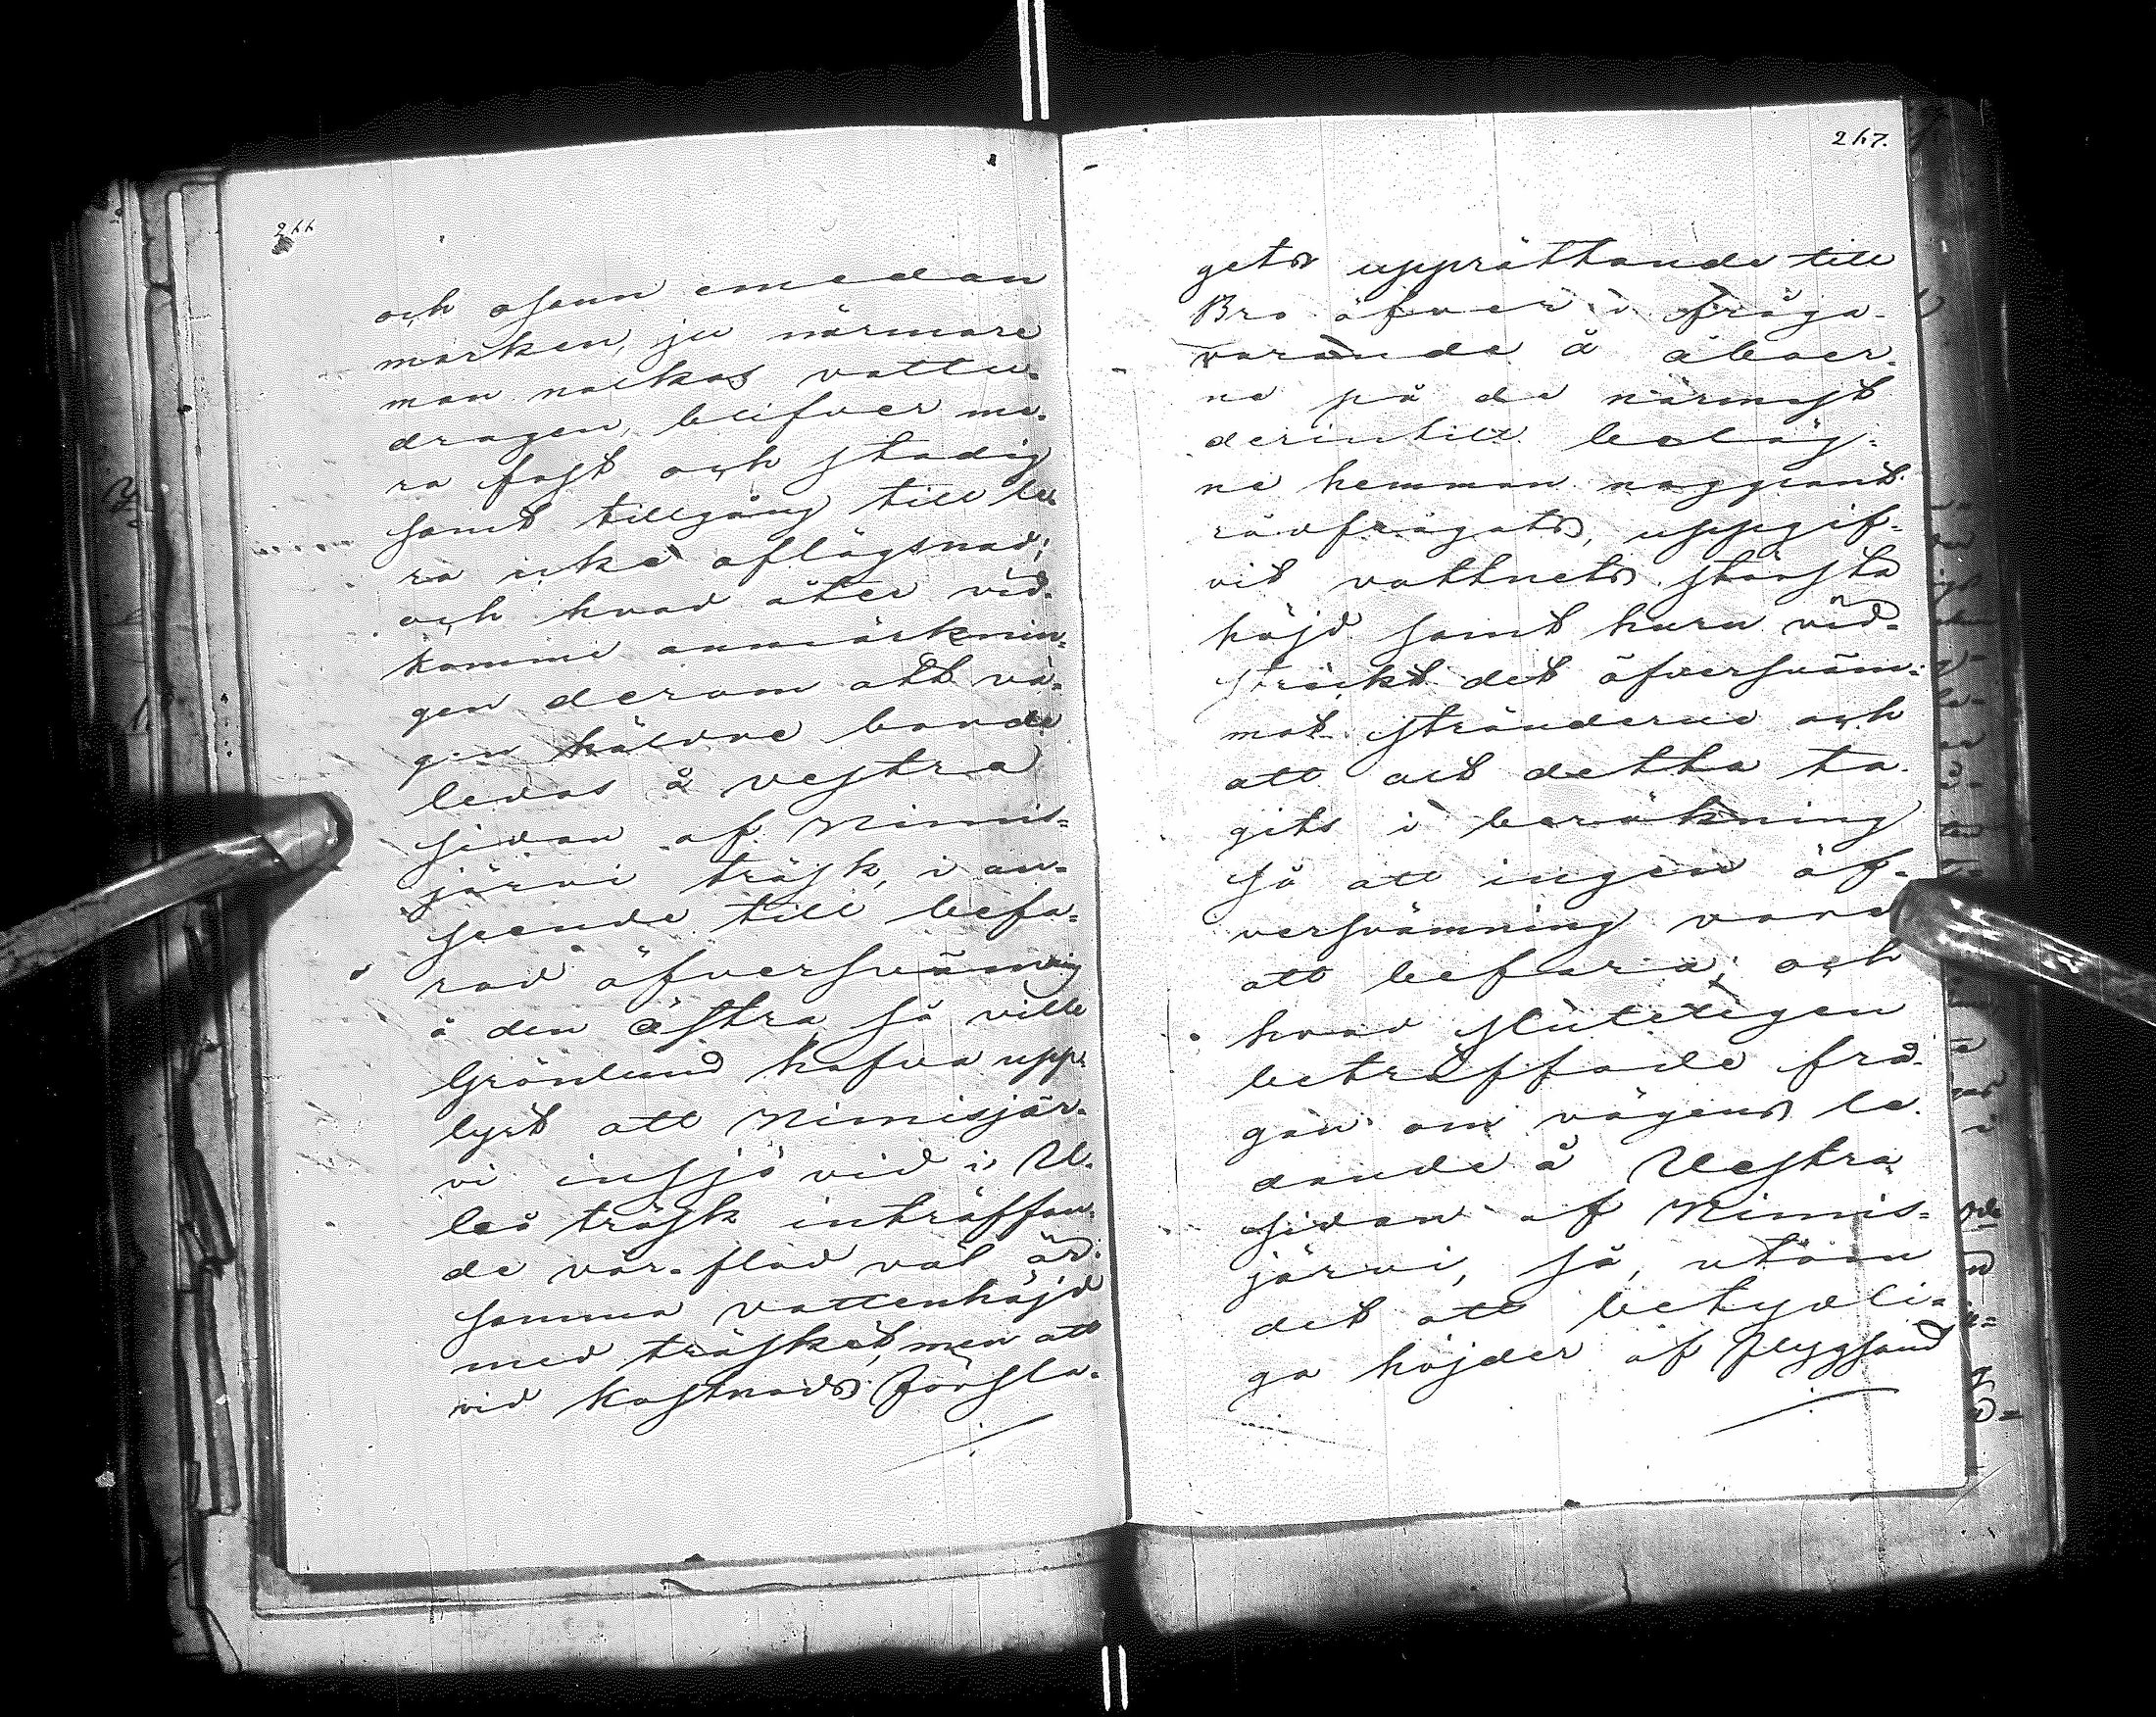 266
och osann emedan
marken, ju närmare
man nalkas vattu-
dragen, blifver me-
ra fast och stadig
samt tillgång till le-
ra icke aflägsnad;
och hvad åter vid-
komme anmärknin-
gen derom att vä-
gen hälvre borde
ledas å vestra
sidan af Nimis-
järvi träsk, i an-
seende till befa-
rad öfversvämning
å den östra så ville
Grönlund hafva upp-
lyst att Nimisjär-
vi insjö vid i U-
leå träsk inträffan-
de vår-flod väl är
samma vattenhöjd
med träsket, men att
vid kostnads försla-
267.
gets upprättande till
Bro öfver i fråga-
varande å åboer-
ne på de närmast
derintill beläg-
ne hemman noggrant
rådfrågats, uppgif-
vit vattnets största
höjd samt huru vid-
sträckt det öfversväm-
mat stränderne och
att allt detta ta-
gits i beräkning
så att ingen öf-
versvämning vore
att befara; och
hvad slutligen
beträffade frå-
gan om vägens le-
dande å Vestra
sidan af Nimis-
järvi, så, utom
det att betydli-
ga höjder af flygsand